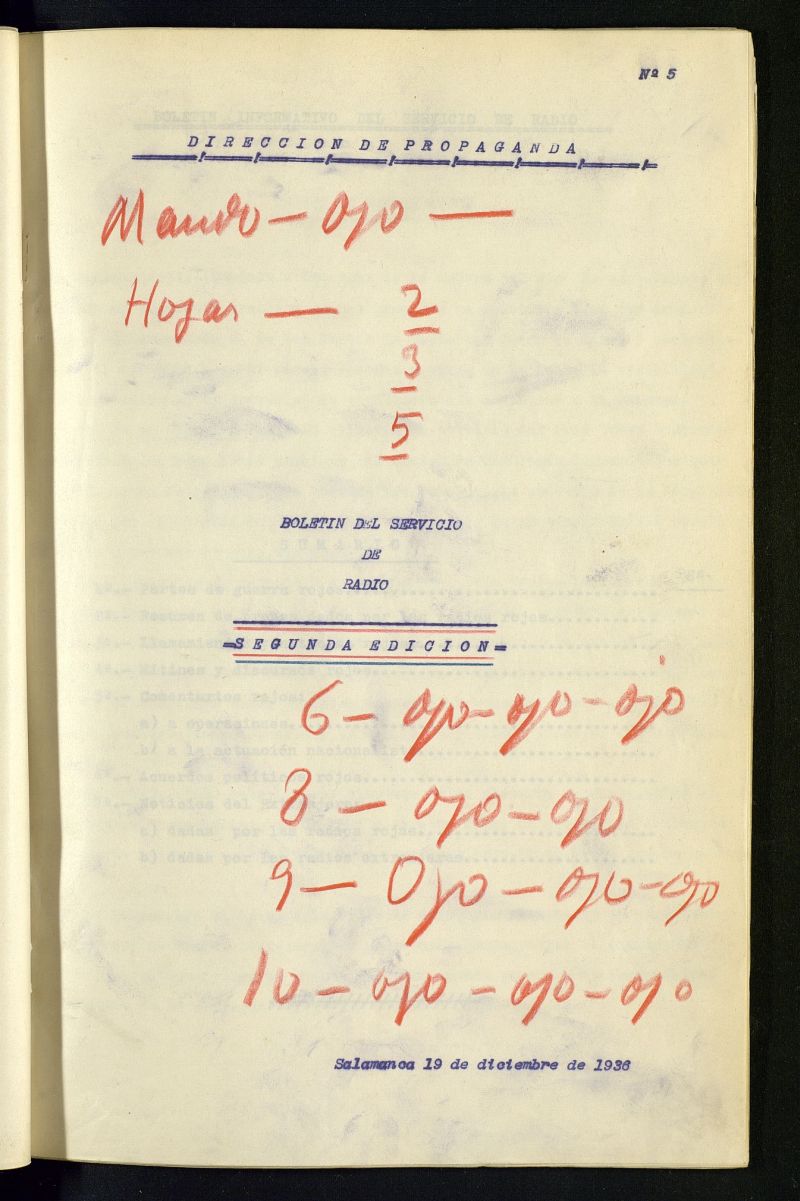 Nº 5
DIRECCION DE PROPAGANDA
Mando - Ojo —
Hojas — 2
3
5
BOLETIN DEL SERVICIO
DE
RADIO
=SEGUNDA EDICION=
6 - ojo - ojo - ojo
8 - ojo - ojo
9 - Ojo - ojo - ojo
10 - ojo - ojo - ojo
Salamanca 19 de diciembre de 1936